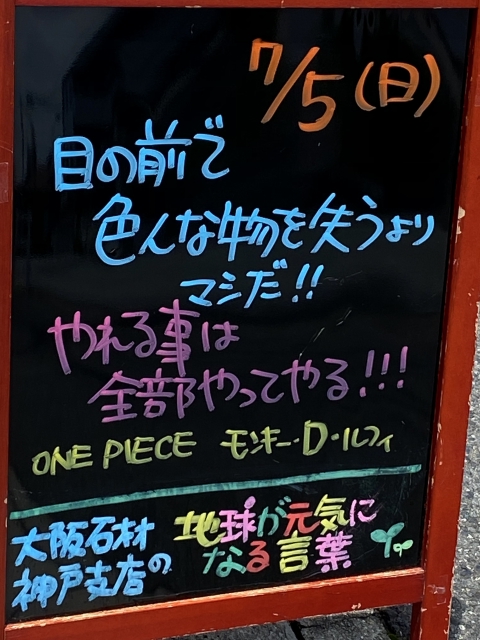 7/5(日)
目の前で
色んな物を失うより
マシだ!!
やれる事は
全部やってやる!!!
ONE PIECE モンキー・D・ルフィ
大阪石材
神戸支店の
地球が元気に
なる言葉